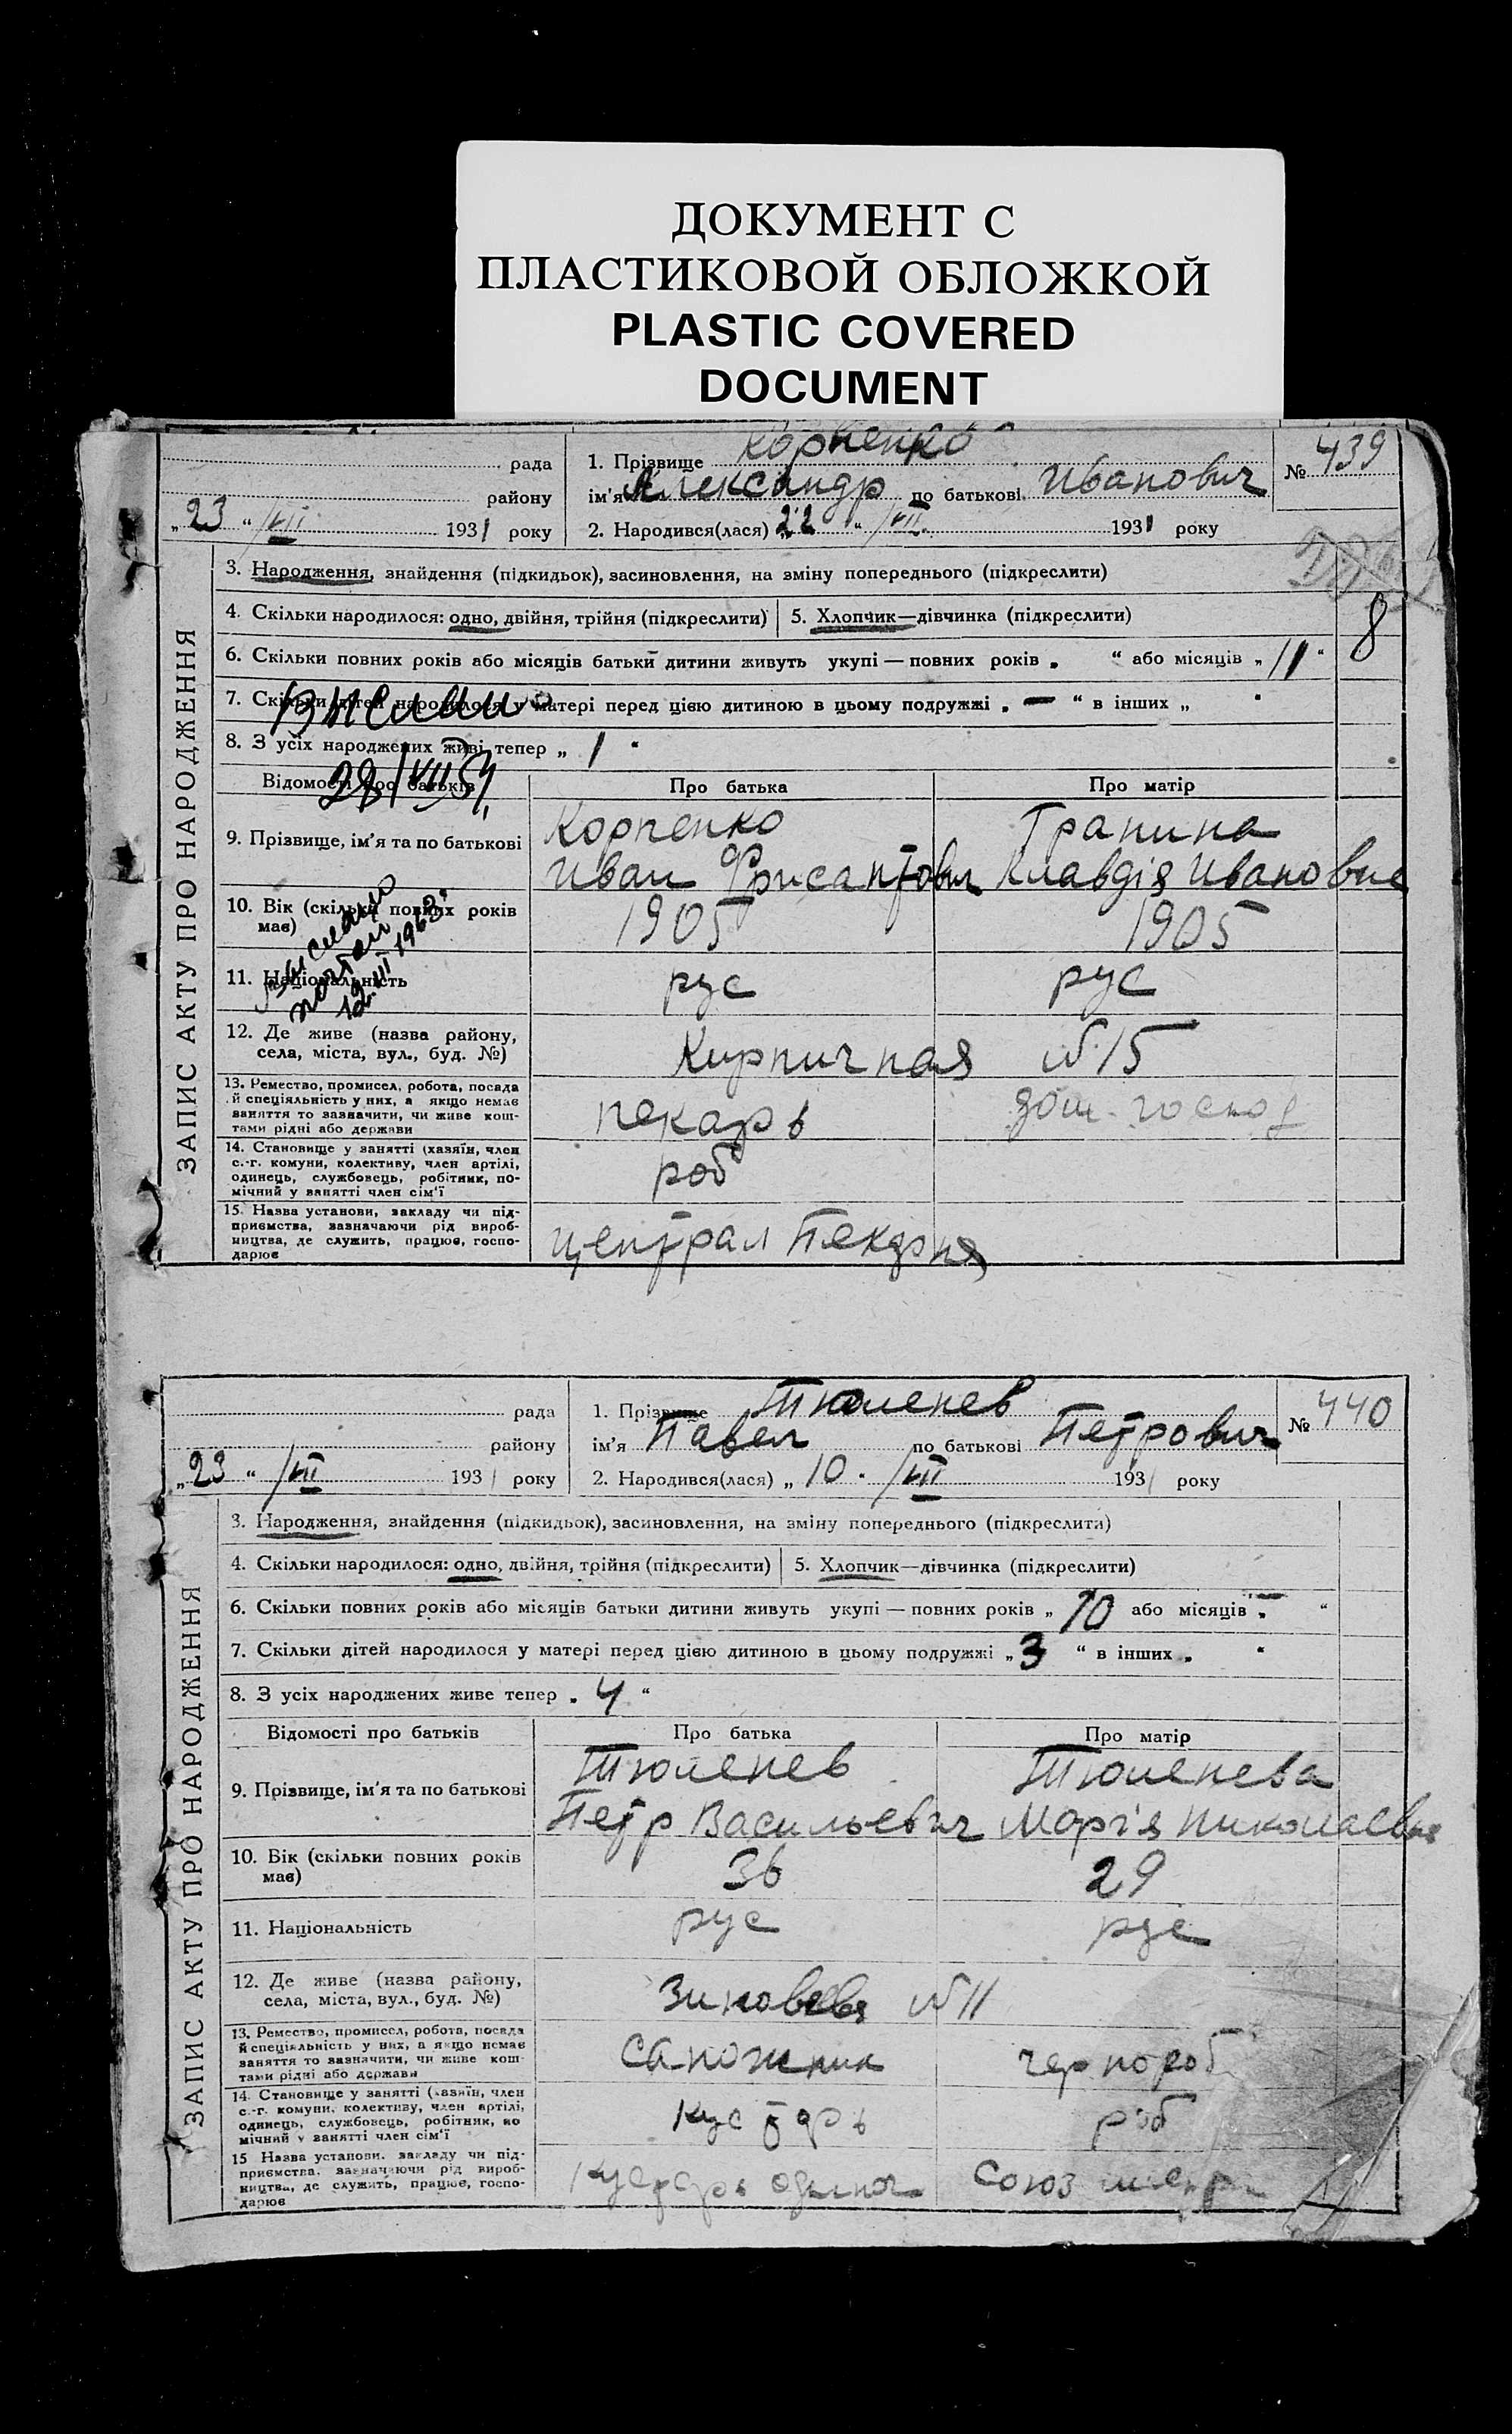 ДОКУМЕНТ С
ПЛАСТИКОВОЙ ОБЛОЖКОЙ
PLASTIC COVERED
DOCUMENT
ЗАПИС АКТУ ПРО НАРОДЖЕННЯ
рада
району
„23“ /VII 1931 року
1. Прізвище Корненко
ім'я Александр по батькові Иванович
2. Народився(лася) 22 “ /VII 1931 року
№ 439
3. Народження, знайдення (підкидьок), засиновлення, на зміну попереднього (підкреслити)
4. Скільки народилося: одно, двійня, трійня (підкреслити)
5. Хлопчик—дівчинка (підкреслити)
8
6. Скільки повних років або місяців батьки дитини живуть укупі — повних років „ “ або місяців „ 11 “
7. Скільки дітей народилося у матері перед цією дитиною в цьому подружжі „ — “ в інших „ “
8. З усіх народжених живі тепер „ 1 “
28/VII 54
Відомості про батьків
Про батька
Про матір
9. Прізвище, ім'я та по батькові
Корненко
Иван
Гранина
Клавдія Ивановне
10. Вік (скільки повних років має)
1905
1905
выслано
12.III 1963
11. Національність
рус
рус
12. Де живе (назва району,
села, міста, вул., буд. №)
Кирпичная №15
13. Ремество, промисел, робота, посада
й спеціяльність у них, а якщо немає
заняття то зазначити, чи живе кош-
тами рідні або держави
пекарь
дом. господ
14. Становище у занятті (хазяїн, член
с.-г. комуни, колективу, член артілі,
одинець, службовець, робітник, по-
мічний у занятті член сім'ї
роб
15. Назва установи, закладу чи під-
приємства, зазначаючи рід вироб-
ництва, де служить, працює, госпо-
дарює
централ Пекарня
ЗАПИС АКТУ ПРО НАРОДЖЕННЯ
рада
району
„23“ /VII 1931 року
1. Прізвище Тюленев
ім'я Павел по батькові Петрович
2. Народився(лася) „ 10 . /VII 1931 року
№ 440
3. Народження, знайдення (підкидьок), засиновлення, на зміну попереднього (підкреслити)
4. Скільки народилося: одно, двійня, трійня (підкреслити)
5. Хлопчик—дівчинка (підкреслити)
6. Скільки повних років або місяців батьки дитини живуть укупі — повних років „ 10 або місяців „ — “
7. Скільки дітей народилося у матері перед цією дитиною в цьому подружжі „ 3 “ в інших „ “
8. З усіх народжених живе тепер „ 4 “
Відомості про батьків
Про батька
Про матір
9. Прізвище, ім'я та по батькові
Тюленев
Петр Васильевич
Тюленева
Марія Николаевне
10. Вік (скільки повних років
має)
36
29
11. Національність
рус
рус
12. Де живе (назва району,
села, міста, вул., буд. №)
№11
13. Ремество, промисел, робота, посада
й спеціяльність у них, а якщо немає
заняття то зазначити, чи живе кош-
тами рідні або держави
сапожник
чернороб
14. Становище у занятті (хазяїн, член
с.-г. комуни, колективу, член артілі,
одинець, службовець, робітник, по
мічний у занятті член сім'ї
кустарь
роб
15 Назва установи, закладу чи під-
приємства, зазначаючи рід вироб-
ництва, де служить, працює, госпо-
дарює
кустарь одыноч
союз